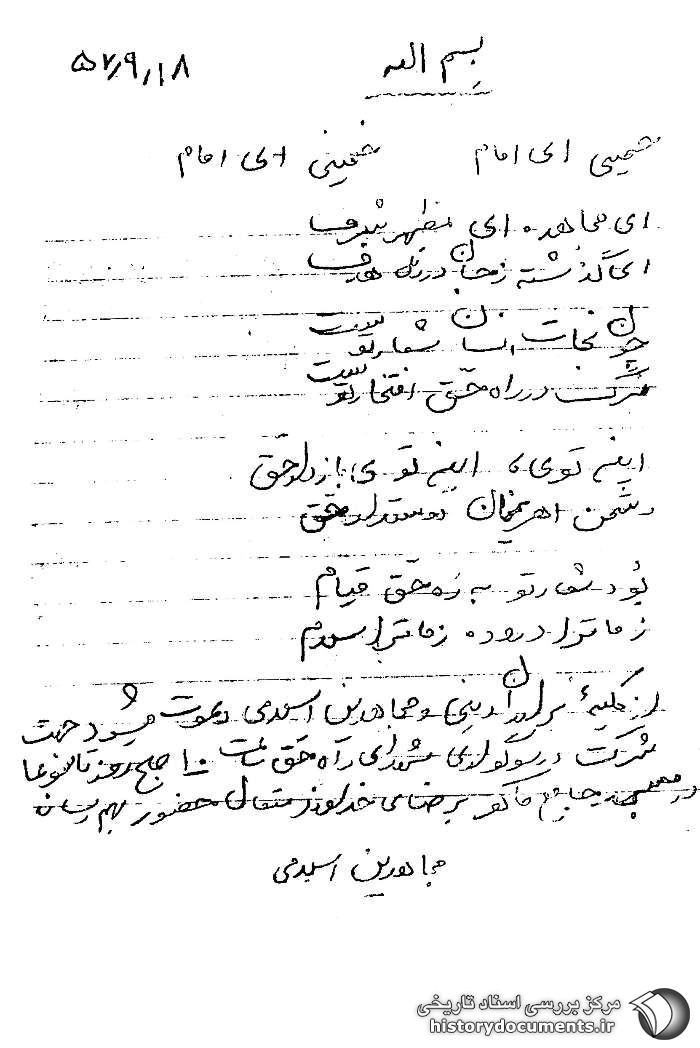 بسم الله
۵۷/۹/۱۸
خمینی ای امام خمینی ای امام
ای مجاهد، ای مظهر شرف
ای گذشته ز جان در ره هدف
چون نجات انسان شعار توست
مرگ در راه حق افتخار توست
این توئی، این توئی پاسدار حق
دشمن اهریمنان دوستدار حق
بُود شعار تو به ره حق قیام
ز ما ترا درود، ز ما ترا سلام
از کلیهٔ برادران دینی و مجاهدین اسلامی دعوت میشود جهت
شرکت در سوگواری شهدای راه حق ساعت ۱۰ صبح روز تاسوعا
در مسجد جامع ماکو برضای خداوند متعال حضور بهم رسانند
مجاهدین اسلامی
مرکز بررسی اسناد تاریخی
historydocuments.ir